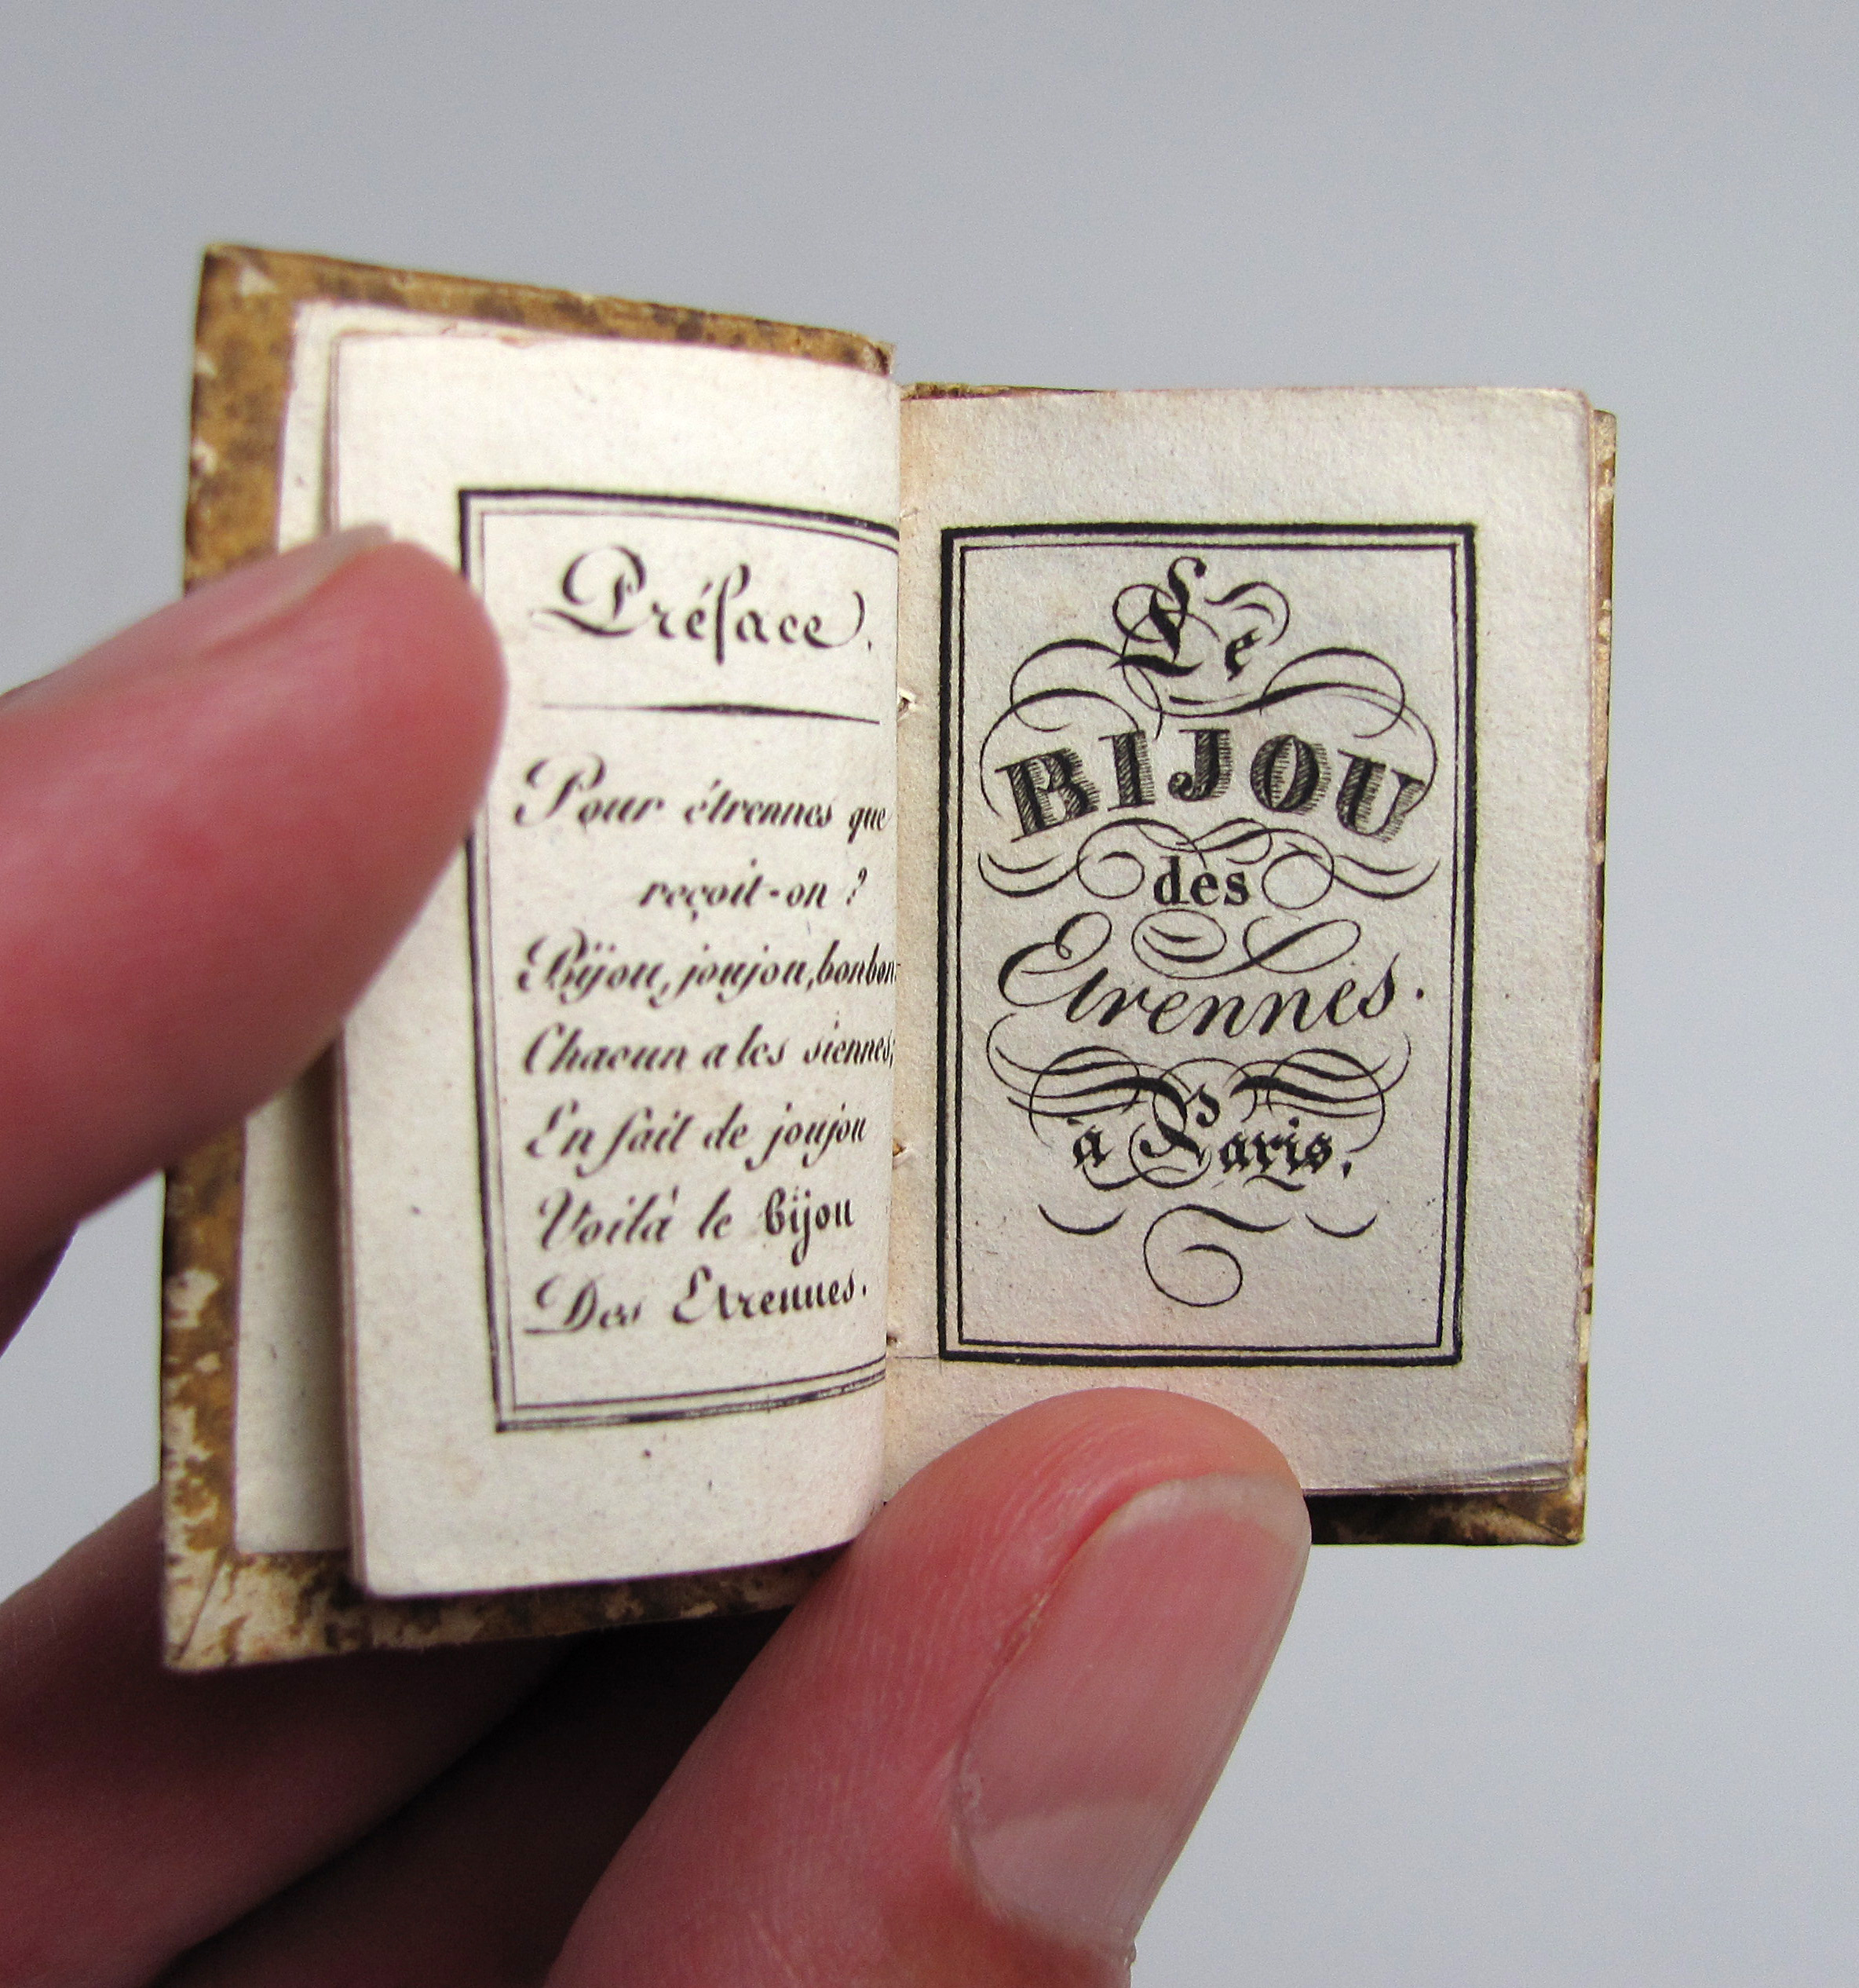 Préface.
Pour étrennes que
reçoit-on ?
Bijou, joujou, bonbon
Chacun a les siennes;
En fait de joujou
Voilà le bijou
Des Etrennes.
Le
BIJOU
des
Etrennes.
à Paris.